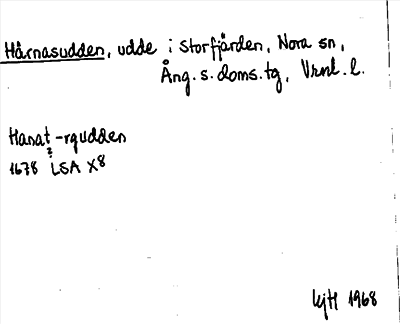 Hårnasudden, udde i Storfjärden, Nora sn,
Ång. s. doms. tg, Vrnl. l.
Hanat-rgudden
?
1678 LSA X8
KjH 1968